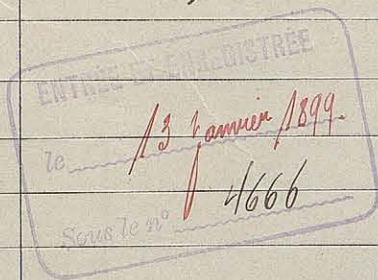 ENTRÉE ET ENREGISTRÉE
le 13 janvier 1899.
Sous le n° 4666